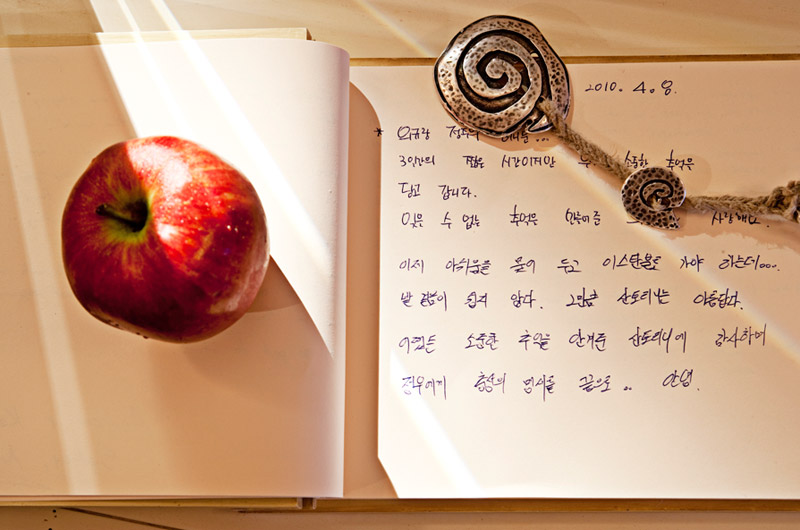 2010. 4. 8.
* 정두의
3일간의 짧은 시간이지만 소중한 추억을
담고 갑니다.
잊을 수 없는 추억을 만들어준 사랑해요.
이제 아쉬움을 뒤 두고 이스탄불로 가야 하는데...
발걸음이 쉽지 않다. 그만큼 산토리니는 아름답다.
어쨌든 소중한 추억을 안겨준 산토리니에 감사하며
정우에게 충성의 맹세를 끝으로.. 안녕.